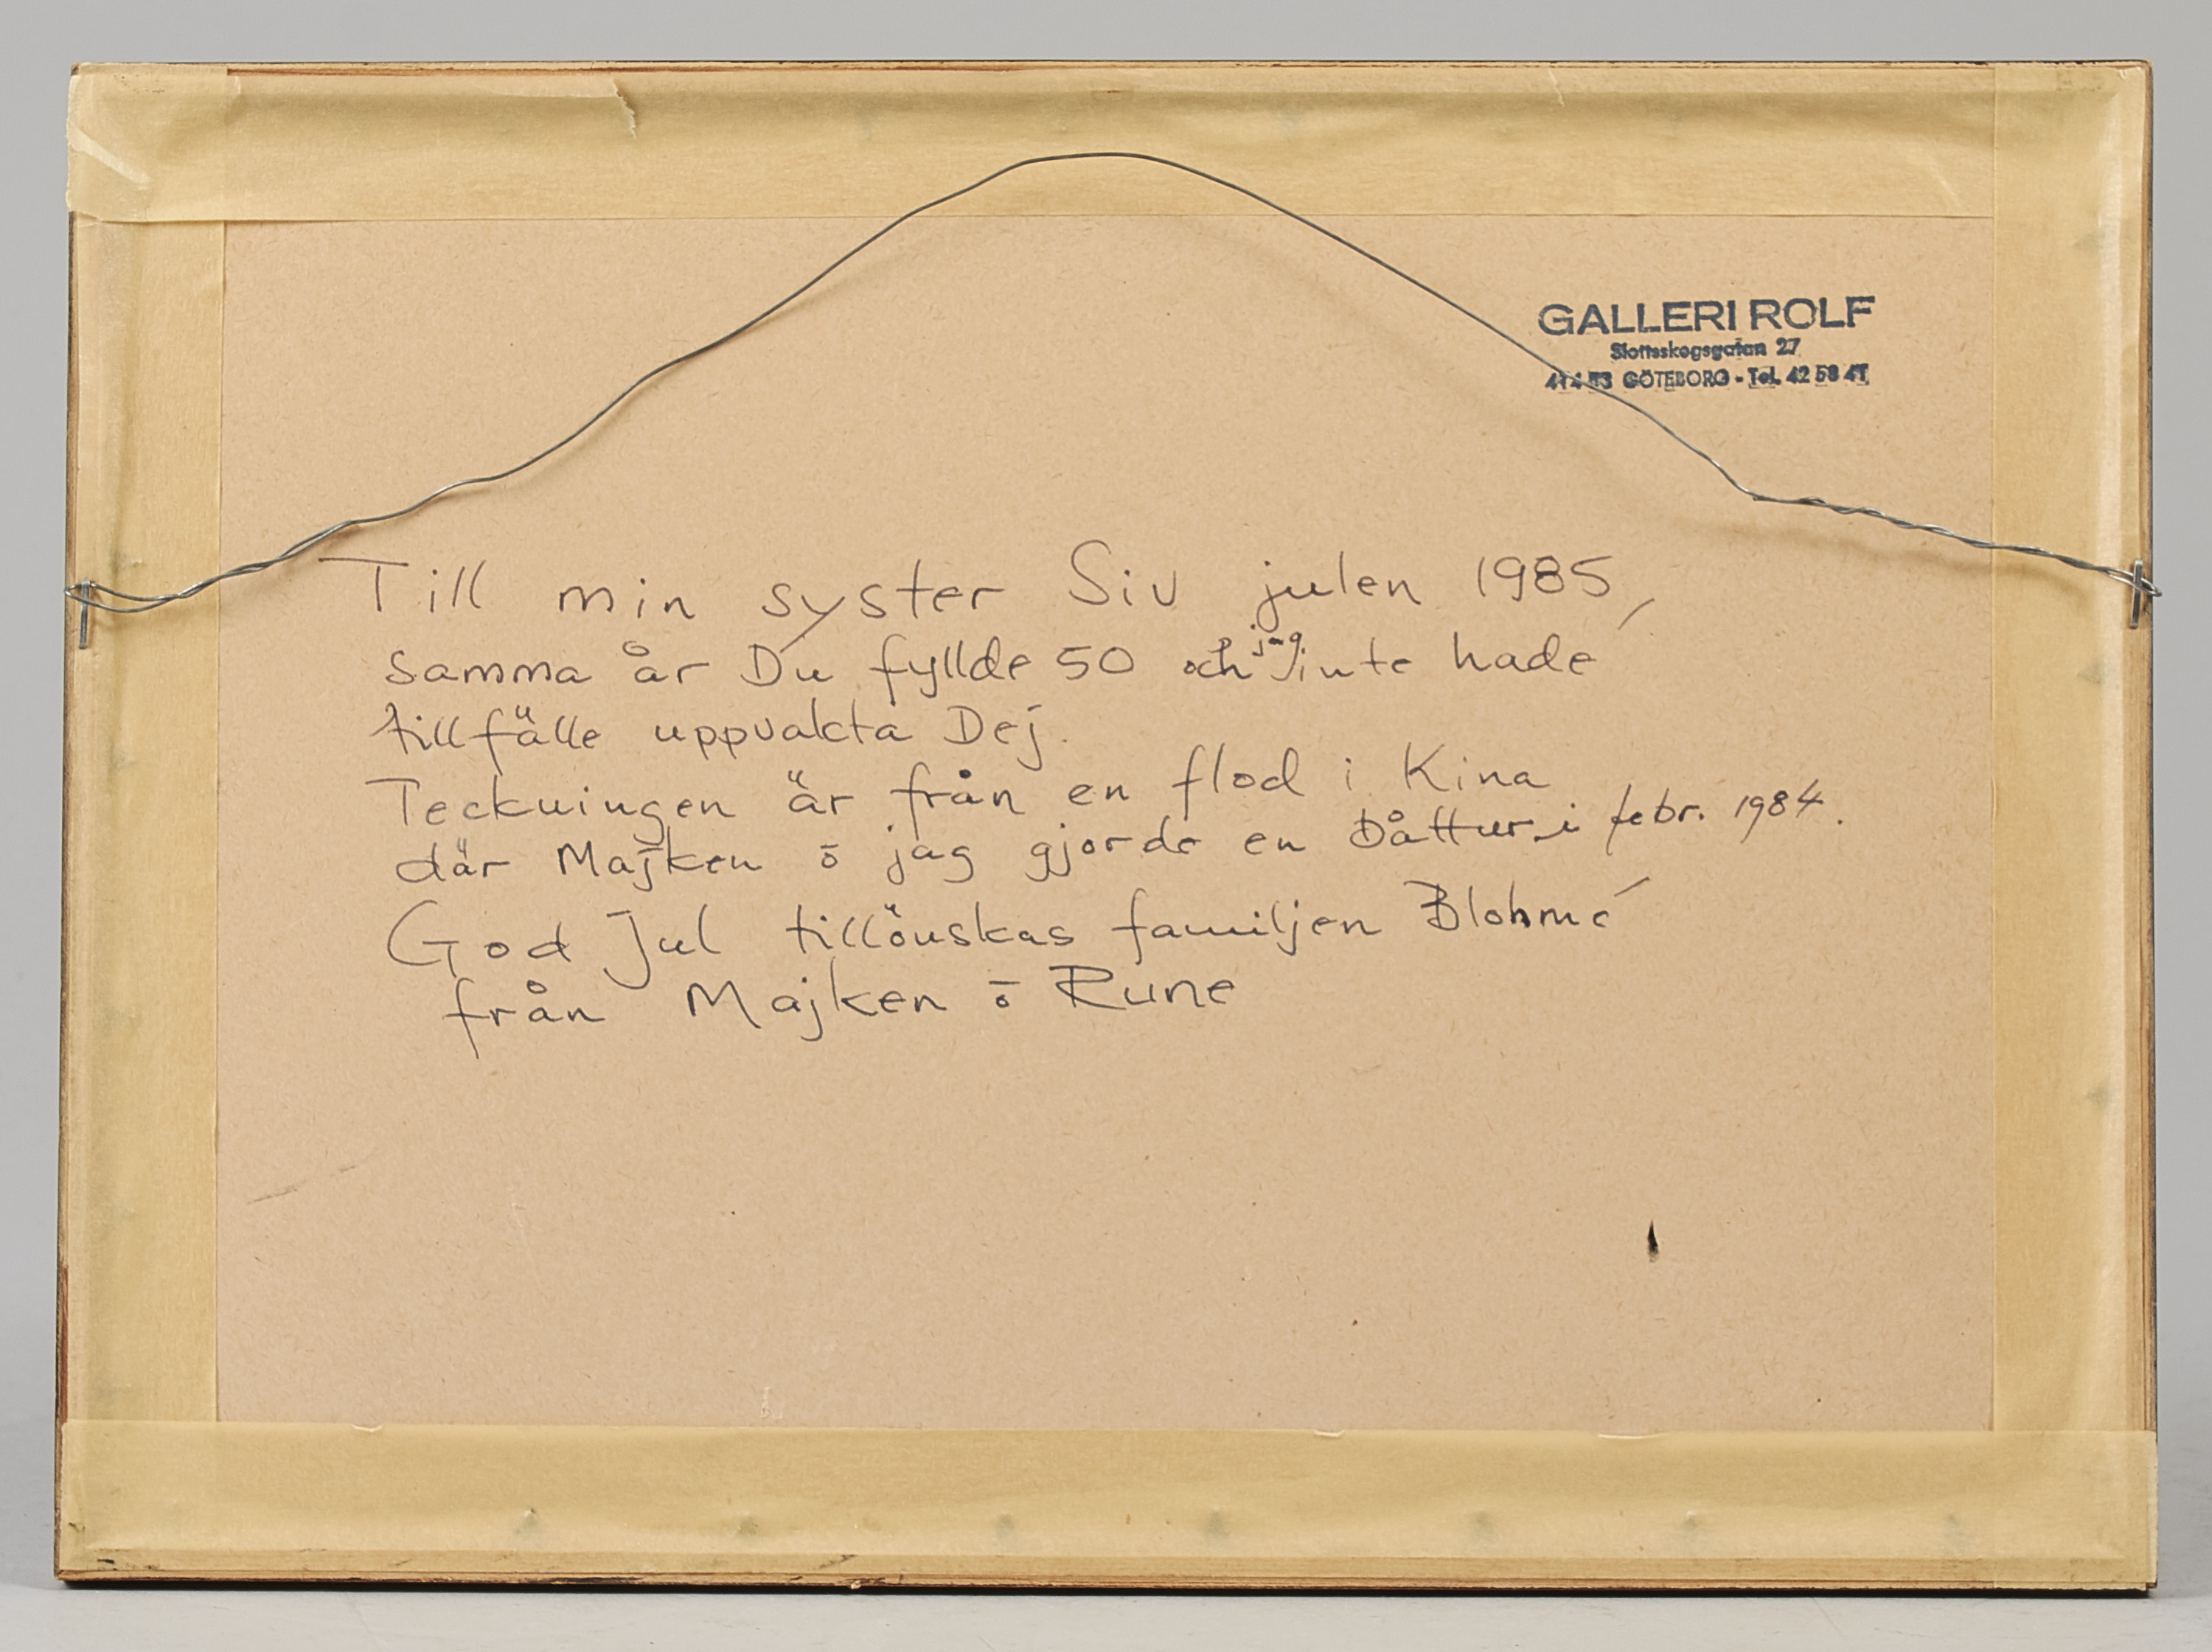 GALLERI ROLF
Slottsskogsgatan 27
GÖTEBORG - Tel. 42 58 47
Till min syster Siv julen 1985,
samma år Du fyllde 50 och jag inte hade
tillfälle uppvakta Dej.
Teckningen är från en flod i Kina
där Majken ō jag gjorde en båttur i febr. 1984.
God Jul tillönskas familjen Blohmé
från Majken ō Rune